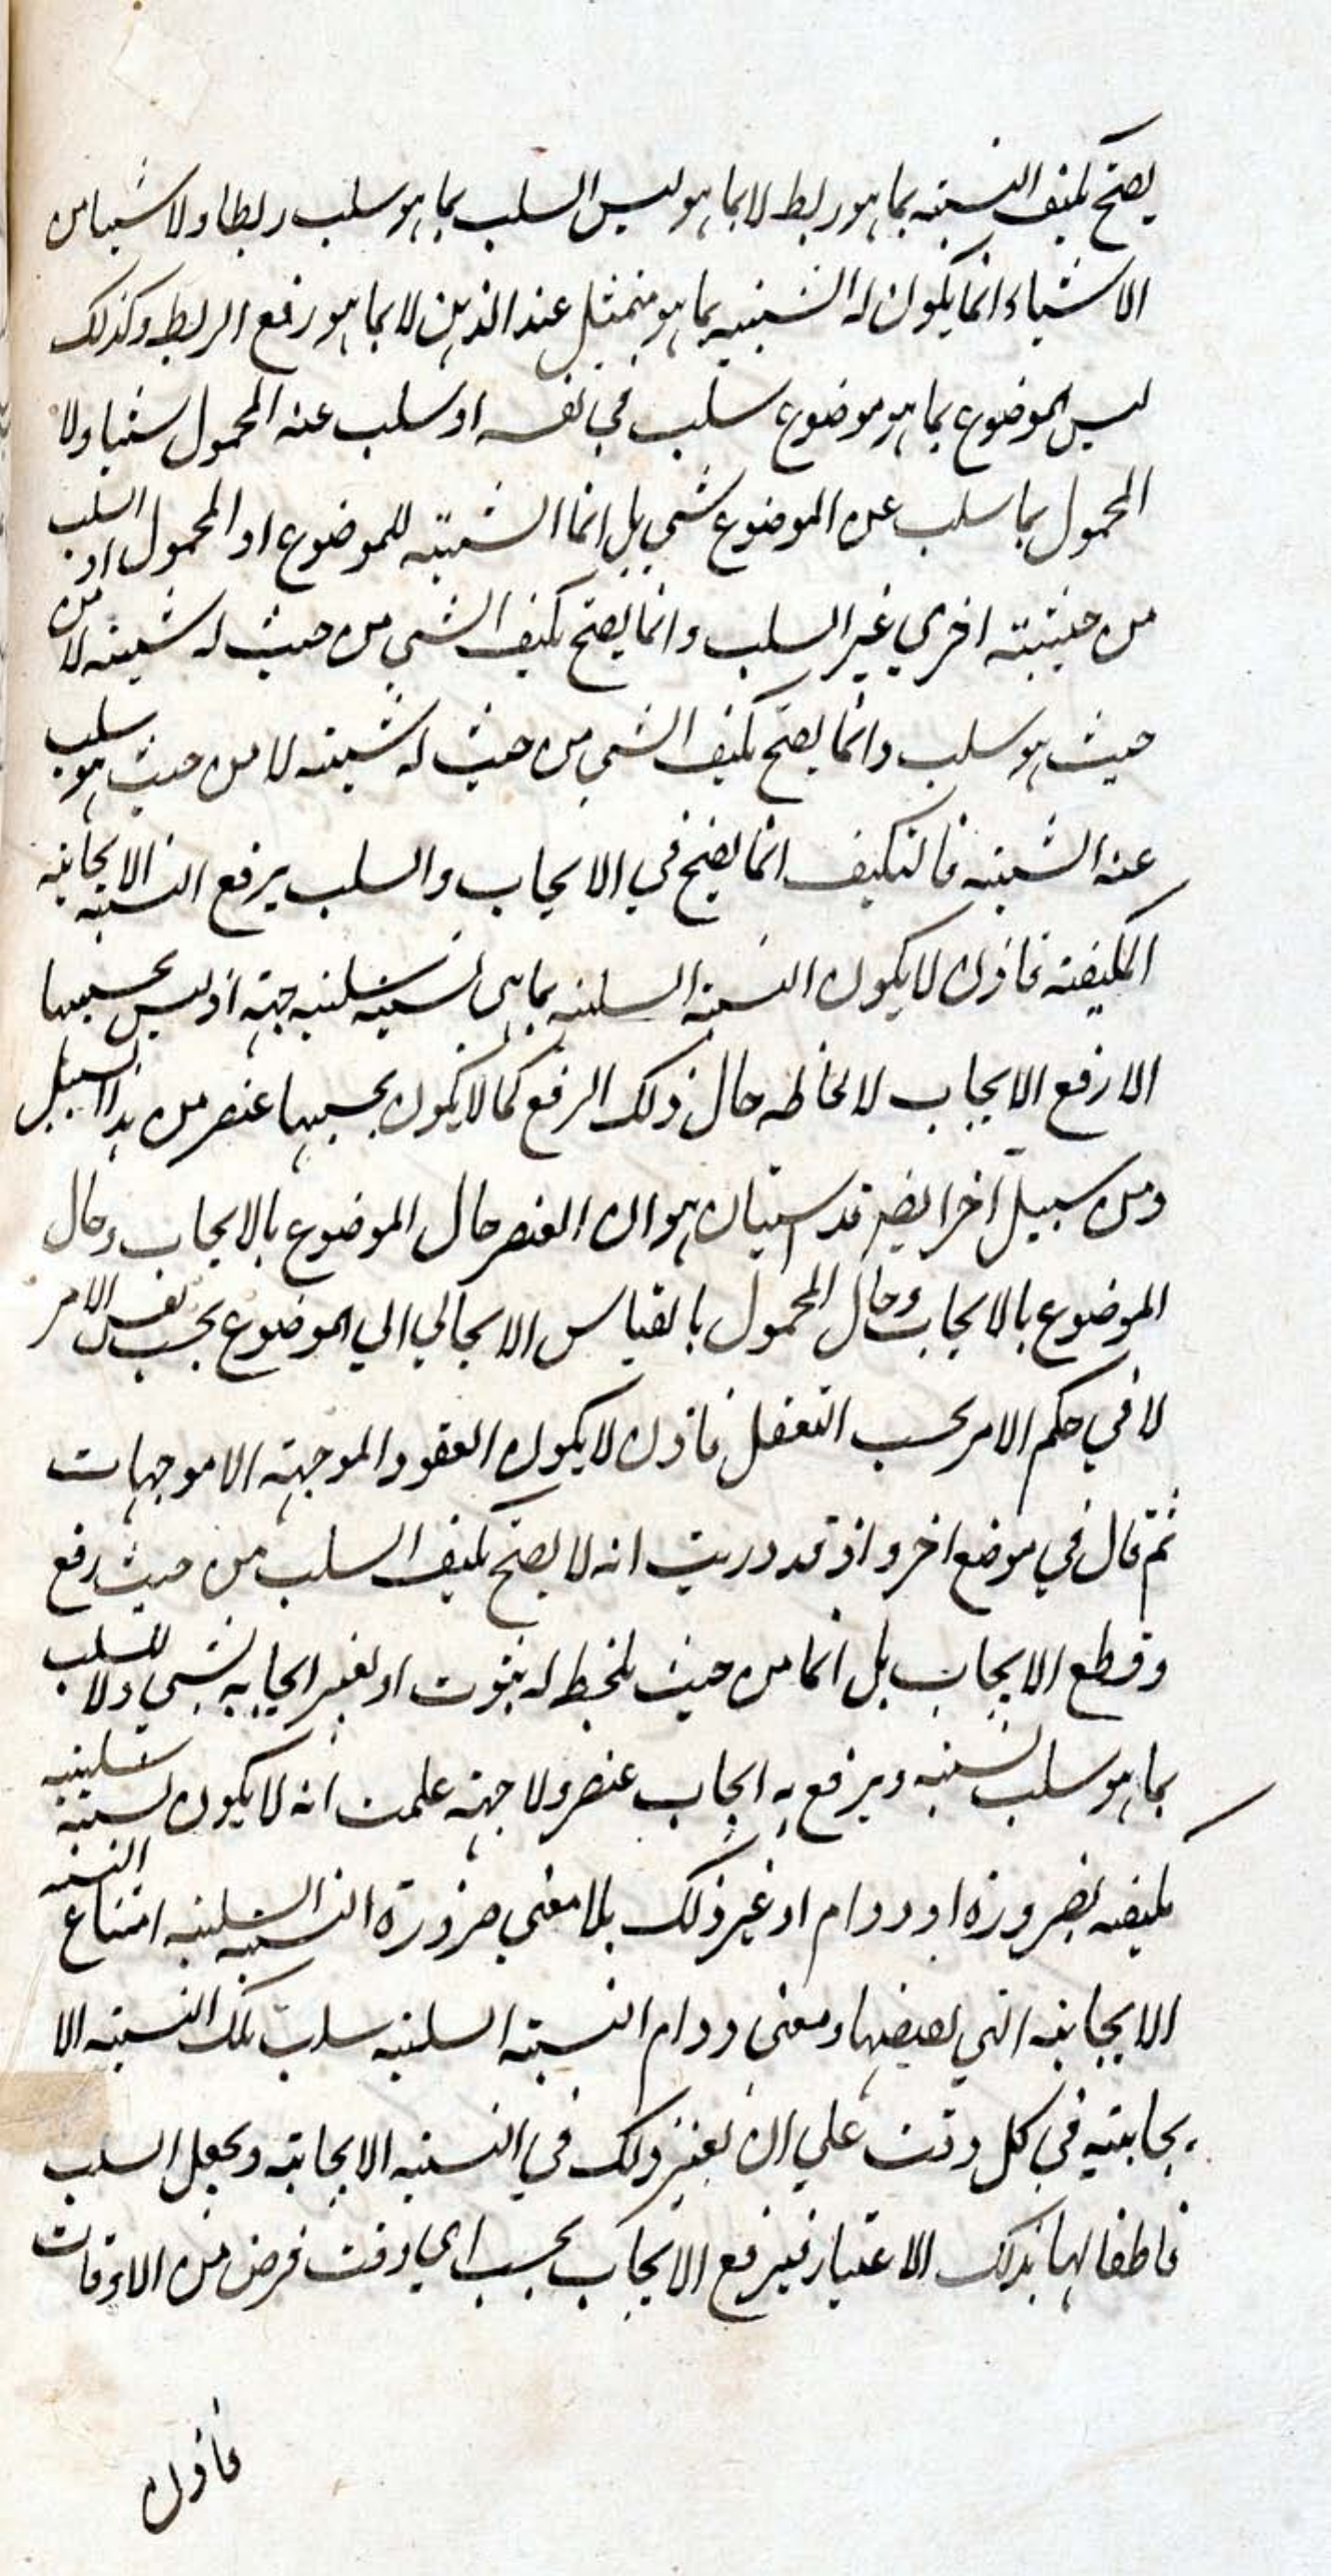 يصح تكيف النسبة بما هو ربط لا بما هو ليس السلب بما هو سلب ربطا ولا شيئا من
الاشياء انما يكون له الشيئية بما هو متمثل عند الذهن لا بما هو رفع الربط وكذلك
ليس الموضوع بما هو موضوع سلب في نفسه او سلب عنه المحمول شيئا ولا
المحمول بما سلب عن الموضوع شي بل انما الشيئية للموضوع او المحمول او السلب
من حيثيته اخري غير السلب وانما يصح تكيف الشي من حيث له شيئيه لا من
حيث هو سلب وانما يصح تكيف الشي من حيث له شيئيه لا من حيث هو سلب
عنه الشيئيه فالتكيف انما يصح في الايجاب والسلب يرفع النسبه الايجابيه
المكيفته فاذن لا يكون النسبة السلبيه بما هي نسبيه سلبيه جهته اذ ليس بحسبها
الا رفع الايجاب لا لحاظه حال ذلك الرفع كما لا يكون بحسبها عنصر من هذا السبيل
ومن سبيل آخر ايضا قد استبان هو ان العنصر حال الموضوع بالايجاب وحال
الموضوع بالايجاب وحال المحمول بالقياس الايجابي الي الموضوع بحسب نفس الامر
لا في حكم الامر بحسب التعقل فاذن لا يكون العقود الموجهته الا موجهات
ثم قال في موضع اخر واذ قد دريت انه لا يصح تكيف السلب من حيث رفع
وقطع الايجاب بل انما من حيث يلحظ له ثبوت او يعتبر ايجابه لشي ولا للسلب
بما هو سلب لنسبيه ويرفع به ايجاب عنصر ولا جهته علمت انه لا يكون لنسبة سلبيه
مكيفيه بضرورة او دوام او غير ذلك بلا معني ضرورة النسبيه السلبيه امتناع النسبه
الايجابيه التي نقيضها ومعني دوام النسبته السلبيه سلب تلك النسبته الا
يجابيته في كل وقت علي ان يعتبر ذلك في النسبيه الايجابيه ويجعل السلب
قاطعا لها بذلك الاعتبار فيرفع الايجاب بحسب اي وقت فرض من الاوقات
فاذن